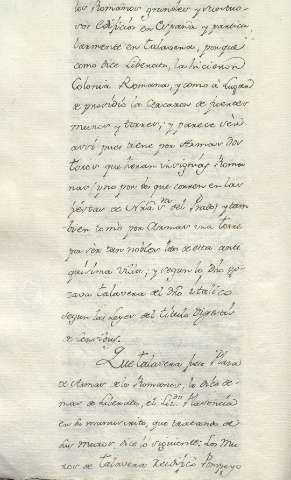 los Romanos grandes y
vos Edificios en España y particu
larmente en Talavera, porque
como dice Liberato, la hicieron
Colonia Romana, y como a lugar
de presidio la cercaron de fuertes
muros y torres; y parece ser
assi pues tiene por Armas dos
toros que heran insignias Roma
nas (y no por los que corren en las
fiestas de Nrã. Srã. del Prado) y tam
bien tomò por Armas una torre
por ser tan nobles las de esta anti
quisima villa, y segun lo dho go
zava Talavera del dro. italico
segun las Leyes del titulo Digestis
de Censibus.
Que Talavera fuese Plaza
de Armas de los Romanos, lo dice de
mas de Liberato, el Lizdo. Plasencia
en su manuscrito, que tratando de
sus muros dice lo siguiente: Los Mu
ros de Talavera Reedificò Pompeyo